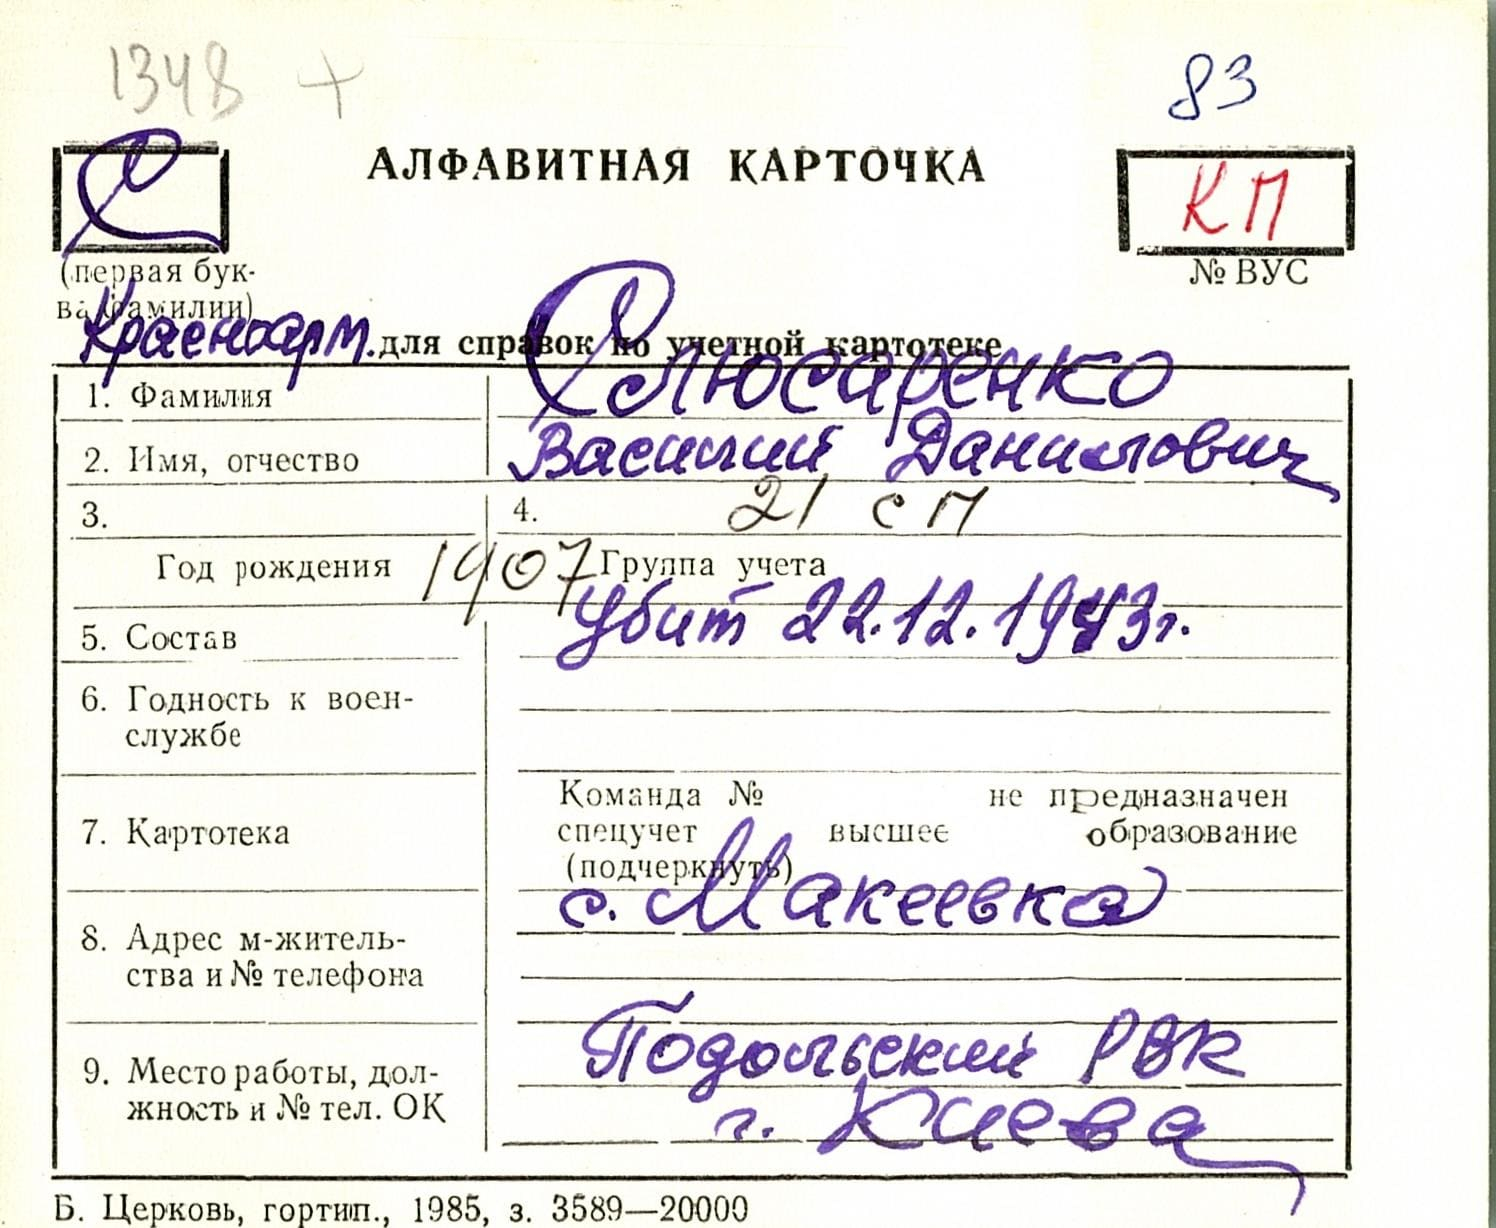 1348 +
83
С
АЛФАВИТНАЯ КАРТОЧКА
КП
(первая бук-
ва фамилии)
№ ВУС
Красноарм. для справок по учетной картотеке
1. Фамилия Слюсаренко
2. Имя, отчество Василий Данилович
3. 4. 21 сп
Год рождения 1907 Группа учета
5. Состав убит 22.12.1943г.
6. Годность к воен-
службе
Команда № не предназначен
7. Картотека спецучет высшее образование
(подчеркнуть)
с. Макеевка
8. Адрес м-житель-
ства и № телефона
Подольский РВК
9. Место работы, дол-
жность и № тел. ОК г. Киева
Б. Церковь, гортип., 1985, з. 3589—20000